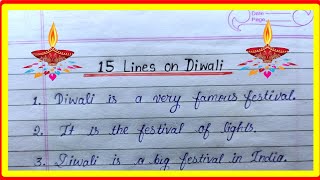 Date
Page
15 Lines on Diwali
1. Diwali is a very famous festival.
2. It is the festival of lights.
3. Diwali is a big festival in India.